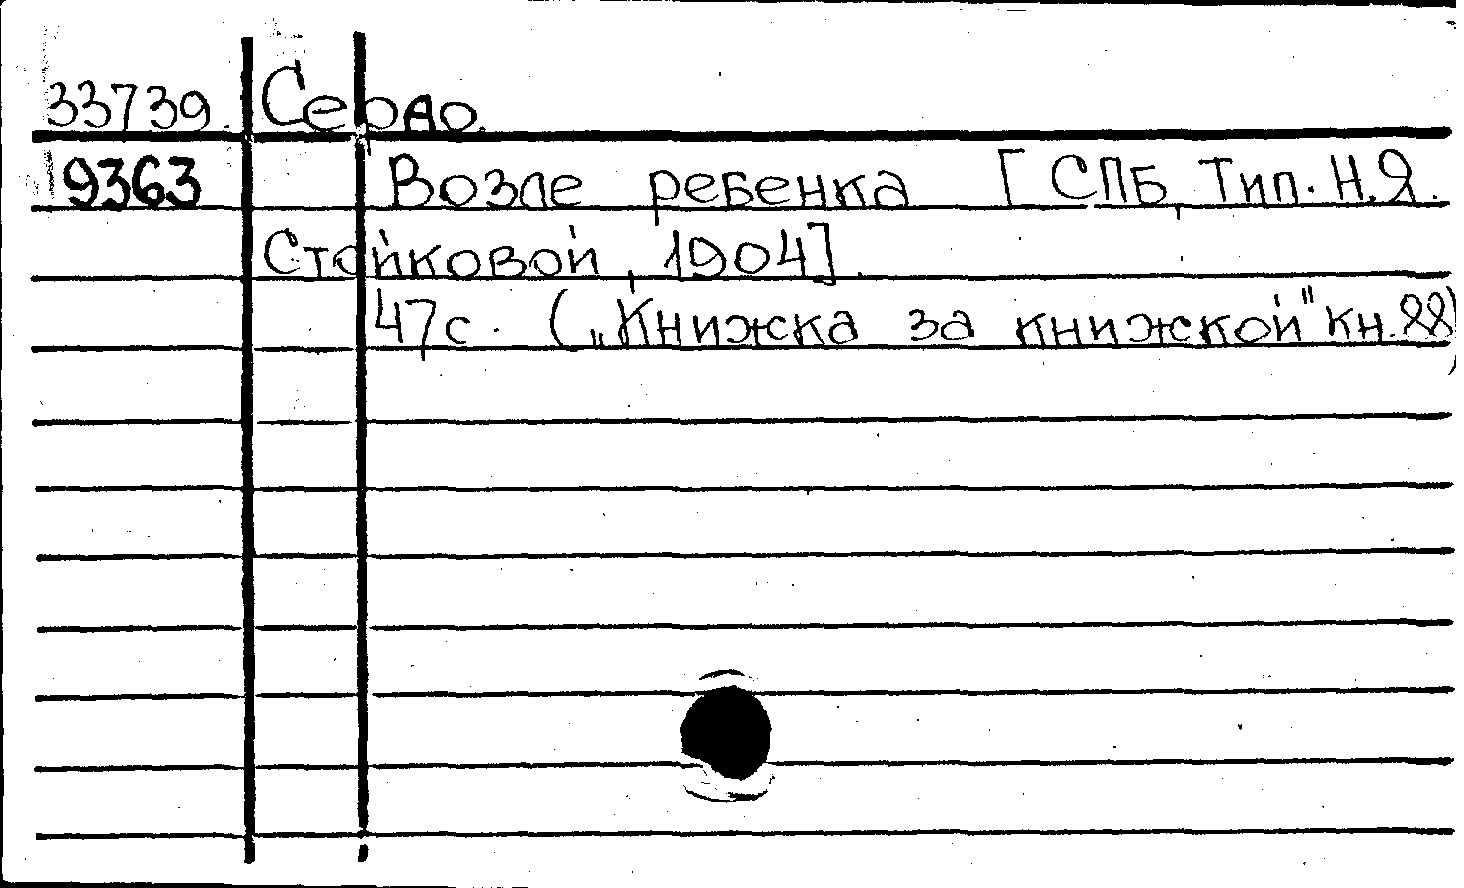 33739 Серао.
9363 Возле ребенка [СПБ, Тип. Н.Я.
Стойковой, 1904].
47с. („Книжка за книжкой" кн. 88)